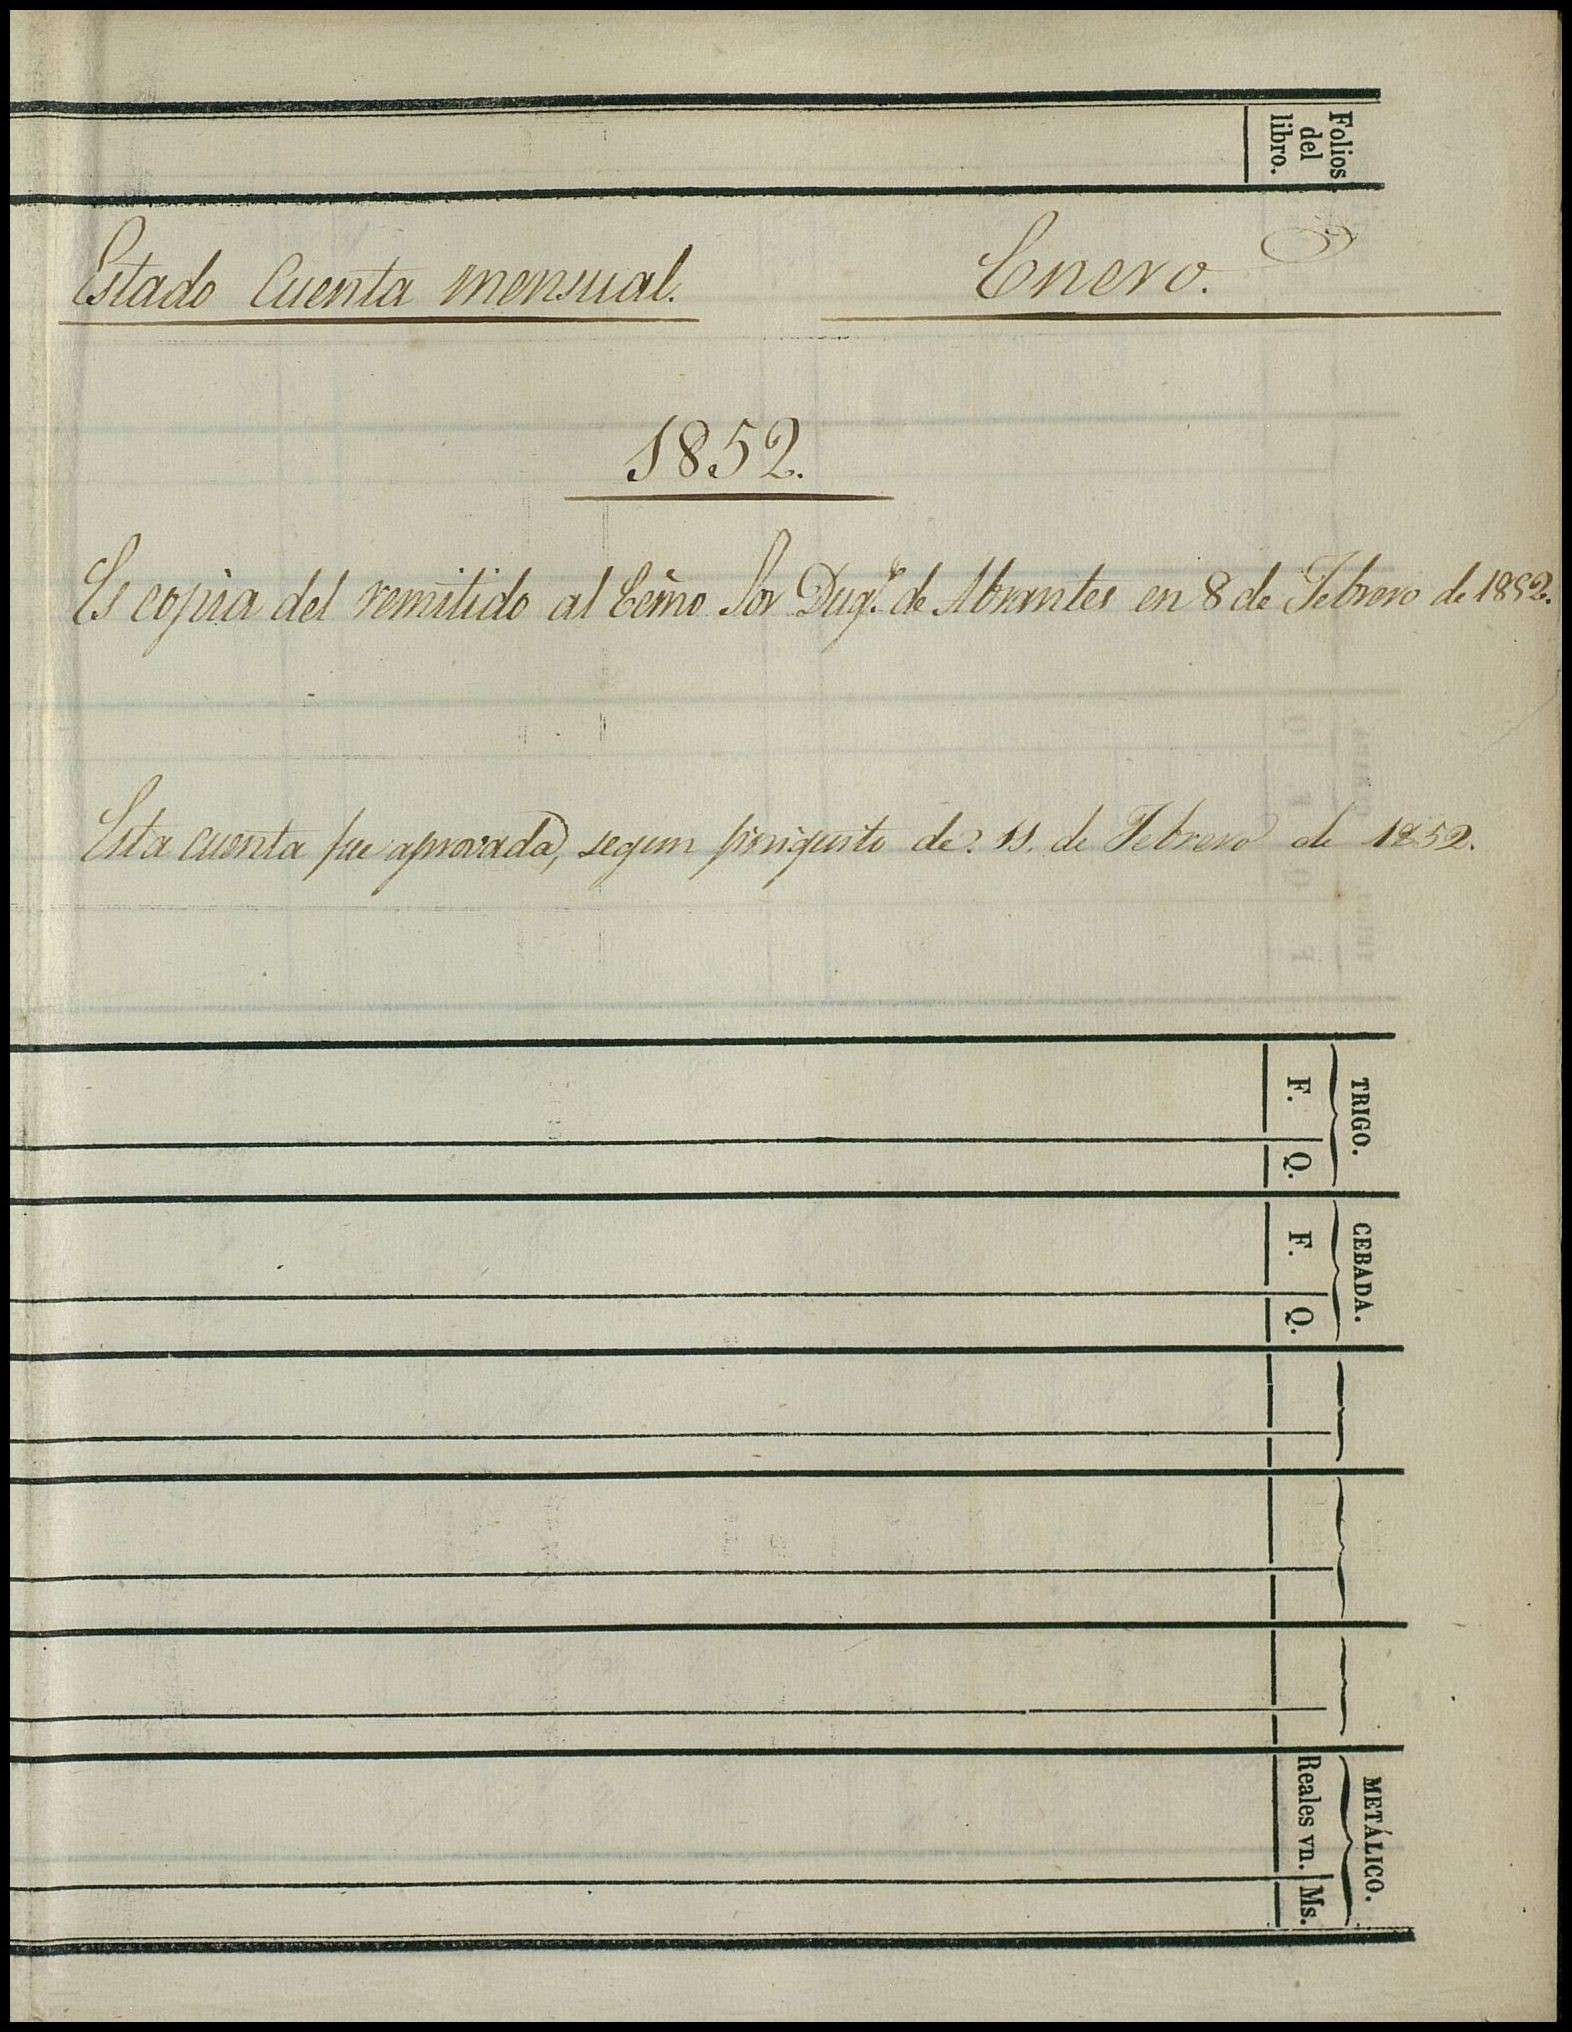 Folios
del
libro.
Estado Cuenta mensual. Enero.
1852.
Es copia del remitido al Ecmo Sor Duqe. de Abrantes en 8 de Febrero de 1852.
Esta cuenta fue aprovada, segun finiquito de 11. de Febrero de 1852.
TRIGO.
F. Q.
CEBADA.
F. Q.
METÁLICO.
Reales vn. Ms.